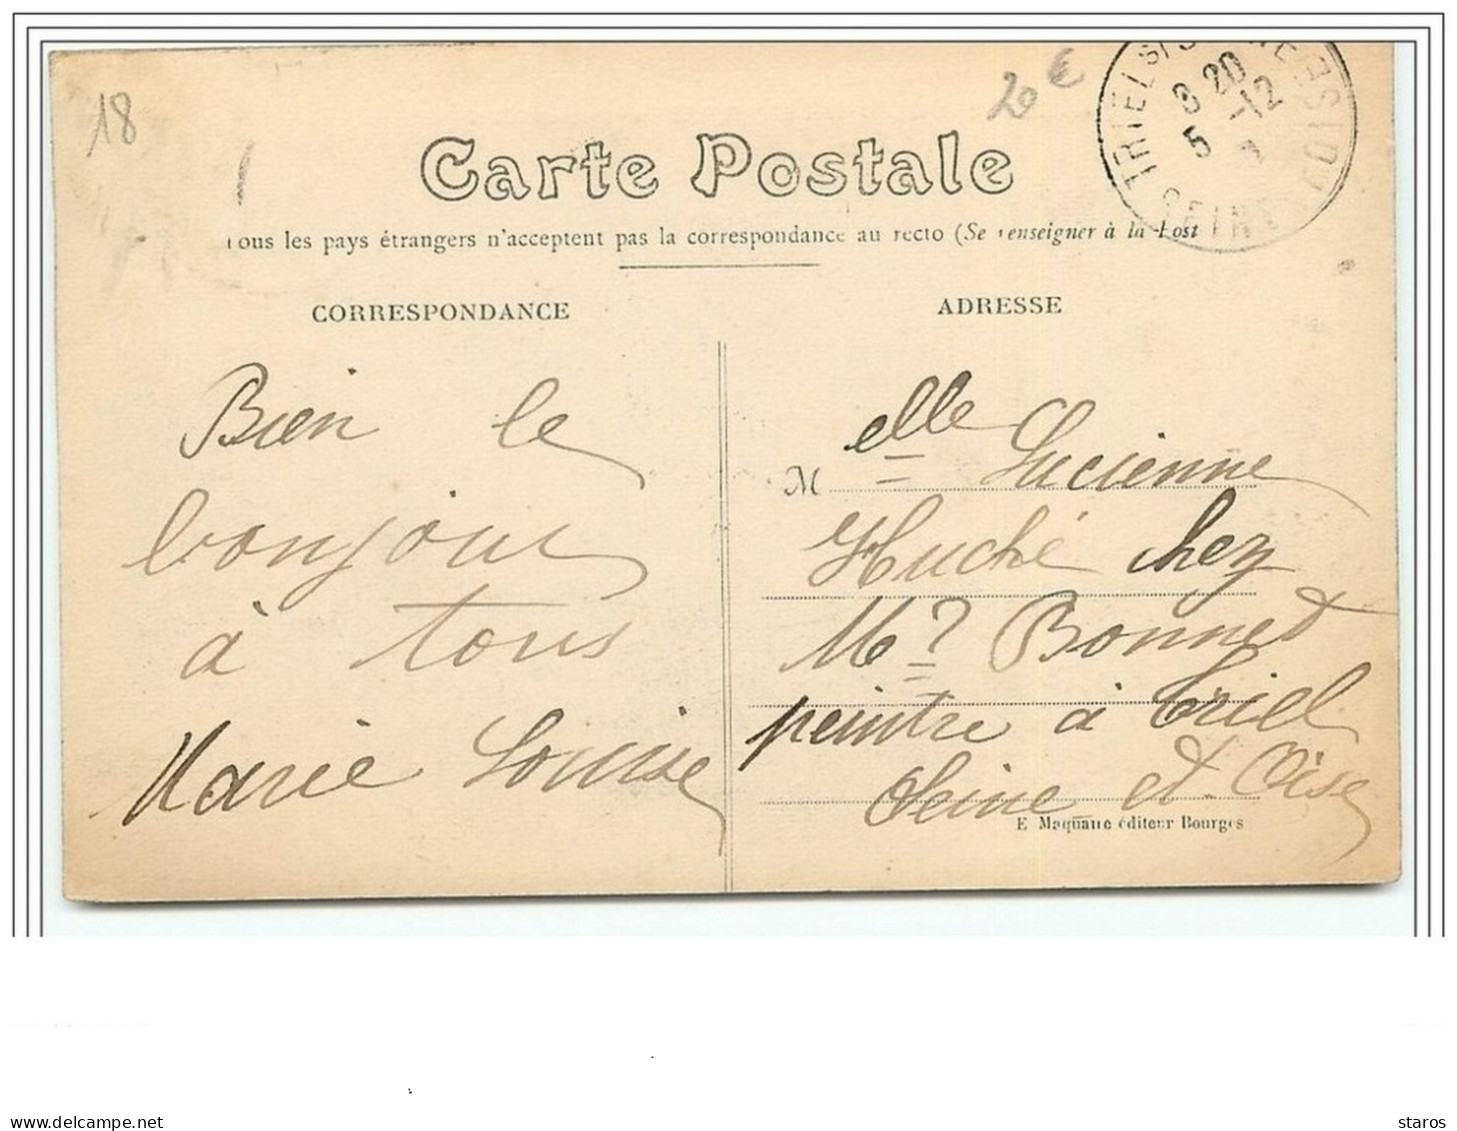 18
20 €
TRIEL S/ SEINE
8 20
5 -12
SEINE ET OISE
Carte Postale
Tous les pays étrangers n'acceptent pas la correspondance au recto (Se renseigner à la Post
CORRESPONDANCE
ADRESSE
Bien le
bonjour
à tous
Marie Louise
M elle Lucienne
Huché chez
Mr Bonnet
peintre à Triel
Seine et Oise
E Maquaire éditeur Bourges
delcampe.net
staros